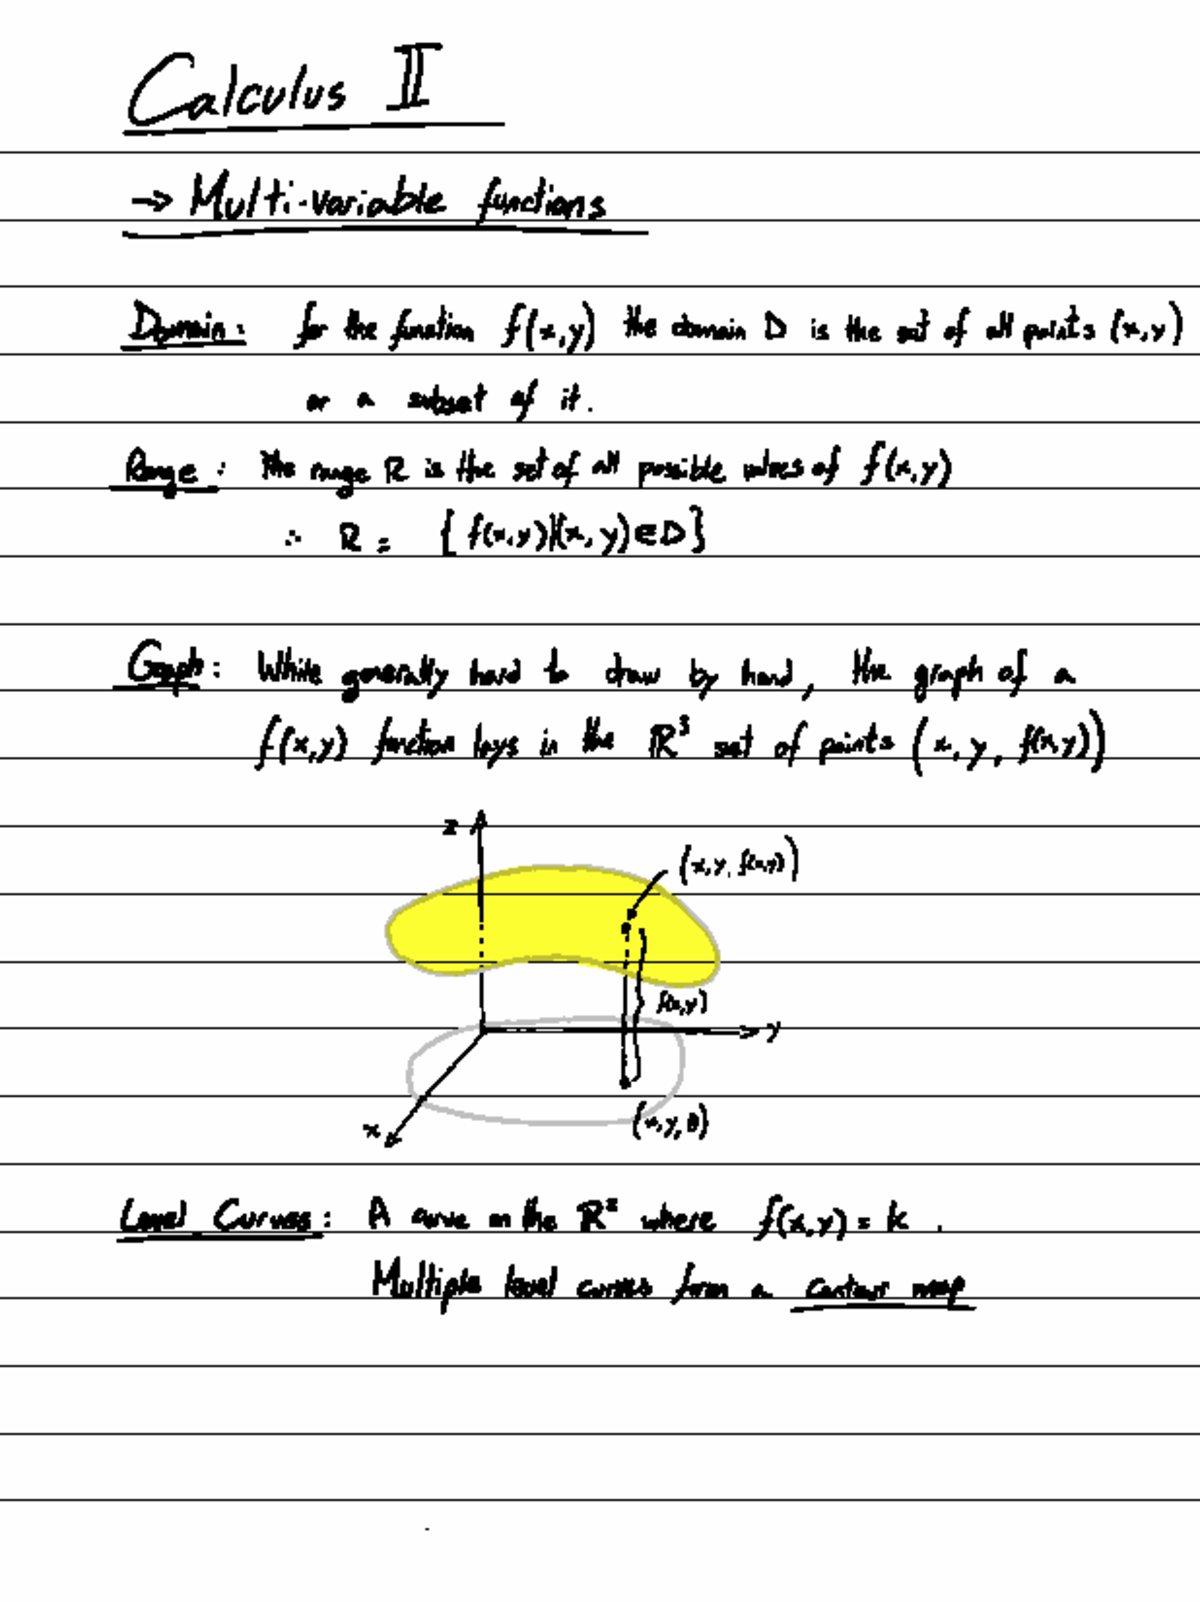 Calculus II
→ Multi-variable functions
Domain: for the function f(x,y) the domain D is the set of all points (x,y)
or a subset of it.
Range: The range R is the set of all possible values of f(x,y)
∴ R = { f(x,y)|(x,y)∈D}
Graph: While generally hard to draw by hand, the graph of a
f(x,y) function lays in the ℝ³ set of points (x, y, f(x,y))
z
(x,y, f(x,y))
f(x,y)
y
x
(x,y,0)
Level Curves: A curve on the ℝ² where f(x,y) = k .
Multiple level curves form a contour map